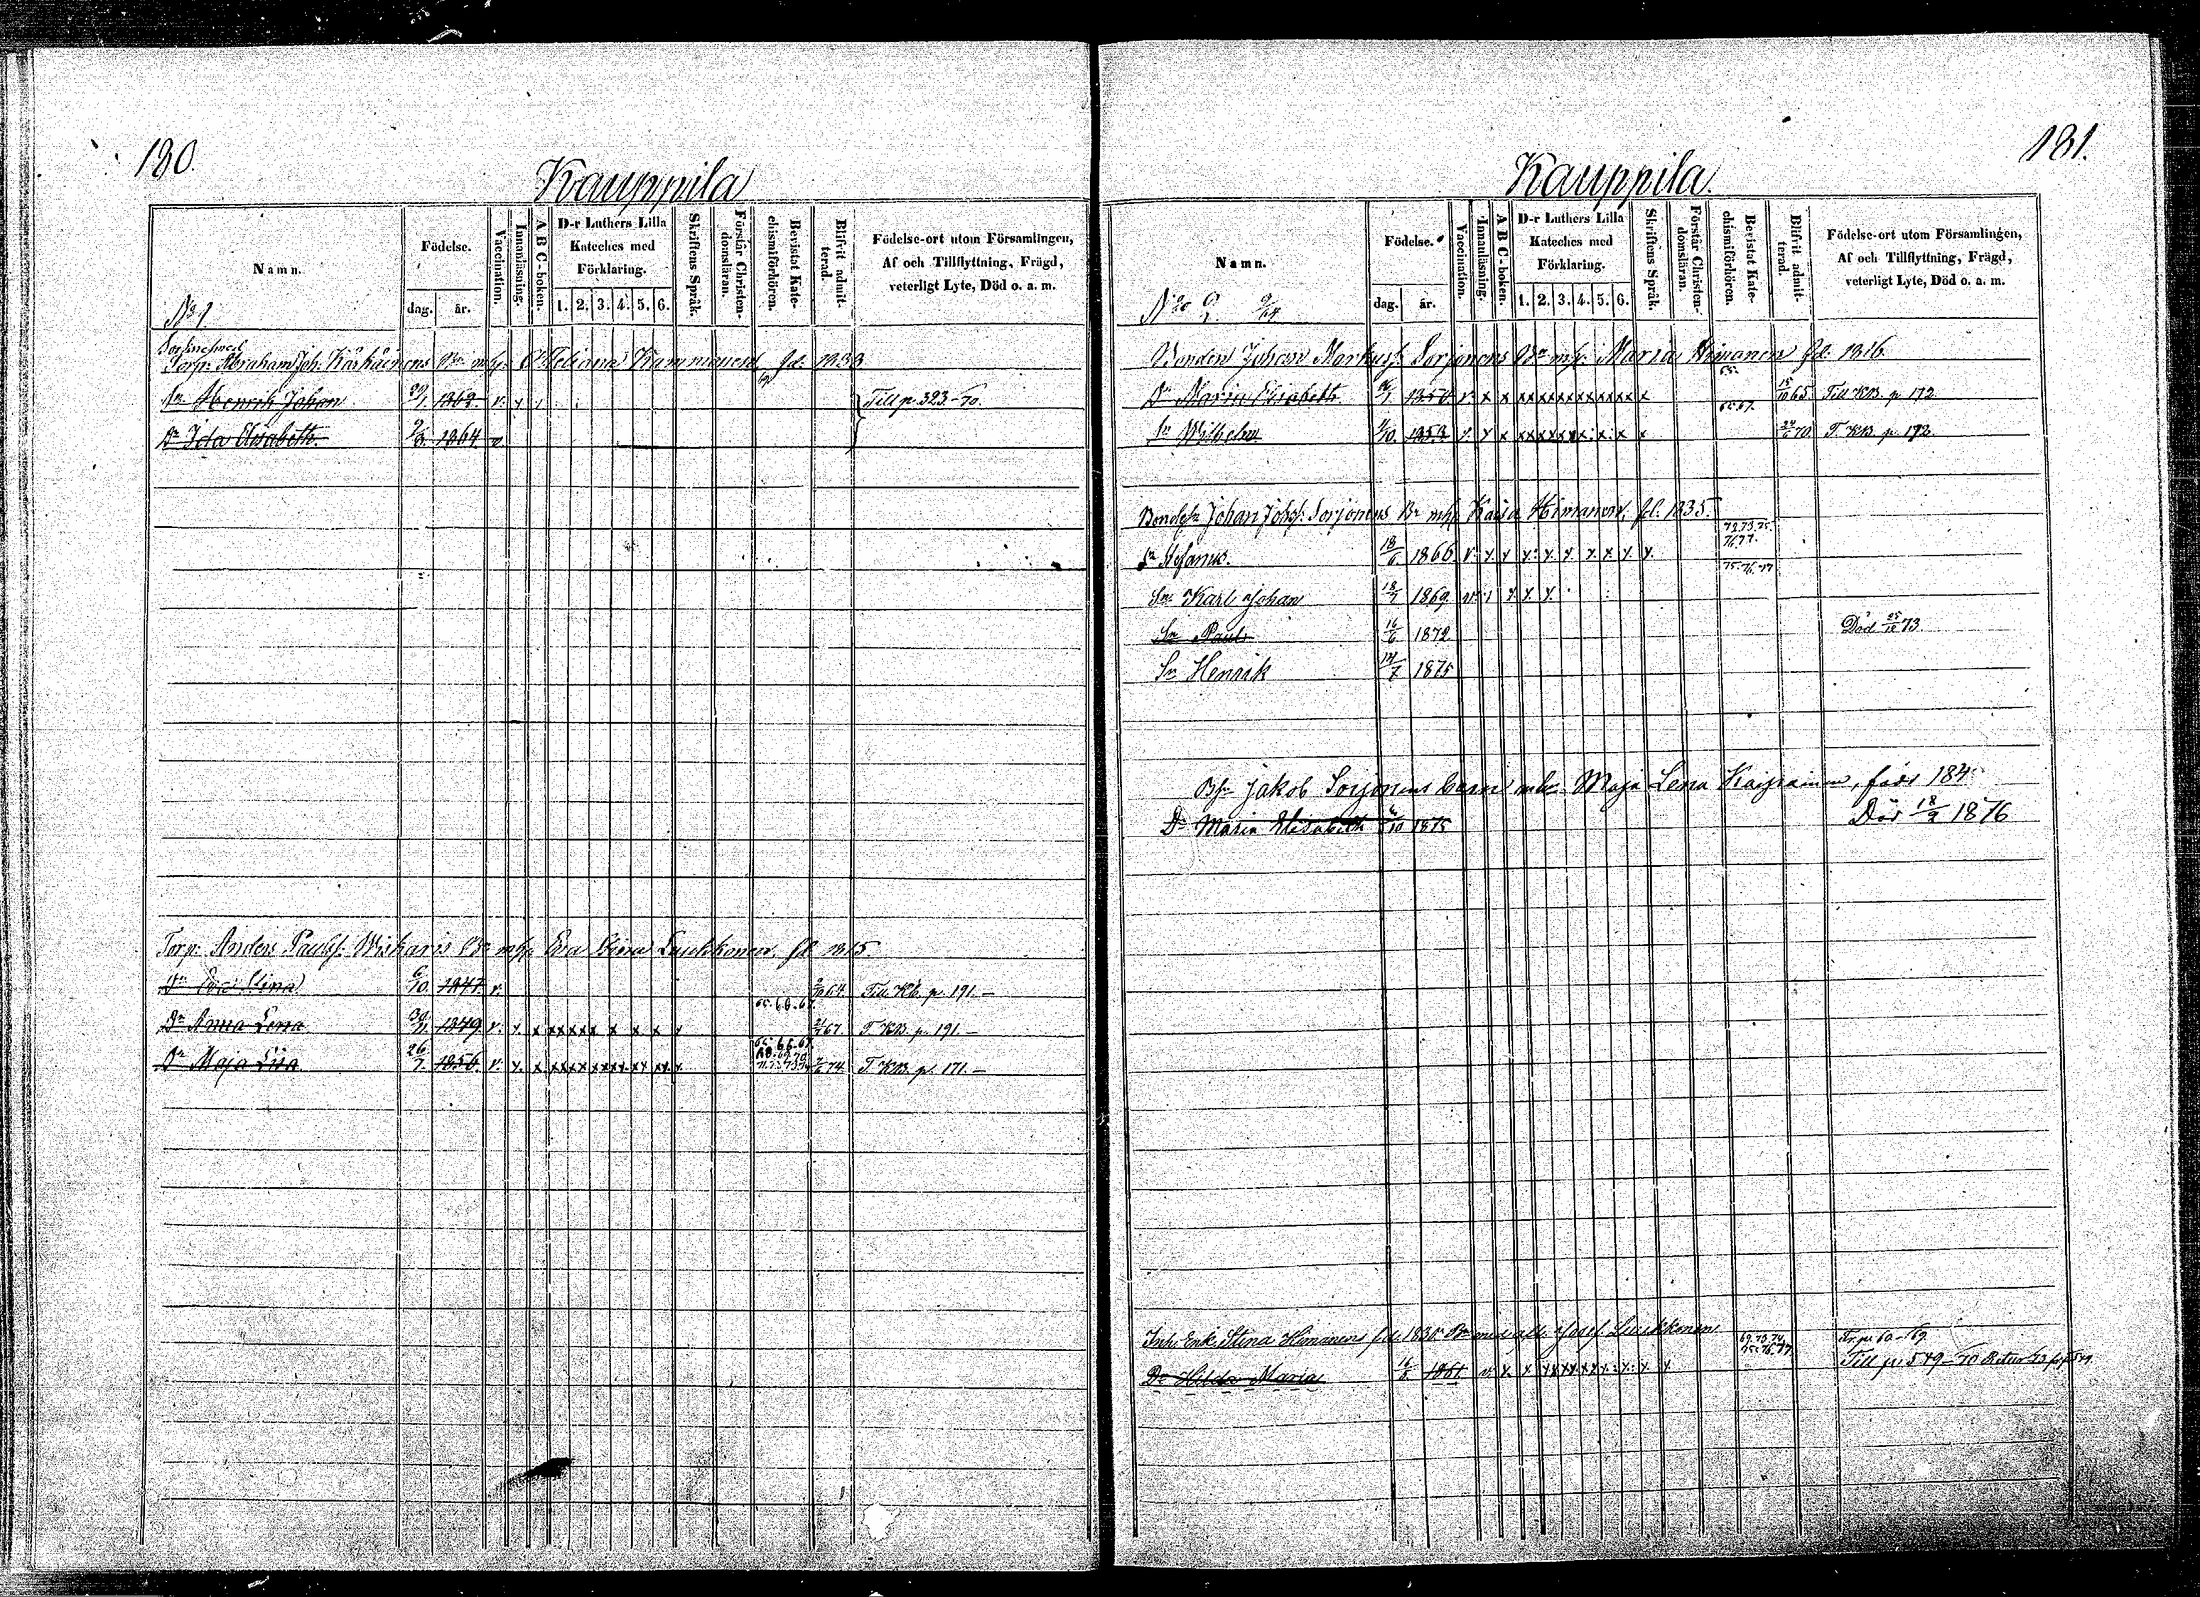 180.
Kauppila
Namn.
Födelse.
dag. år.
Vaccination.
Innanläsning.
A B C-boken.
D-r Luthers Lilla
Kateches med
Förklaring.
1. 2. 3. 4. 5. 6.
Skriftens Språk.
Förstår Christen-
domsläran.
Bevistat Kate-
chismiförhören.
Blifvit admit-
terad.
Födelse-ort utom Församlingen,
Af och Tillflyttning, Frägd,
veterligt Lyte, Död o. a. m.
No 1
Torp. Abraham Joh. Kärkäinens Bn mh: fd: 1833
Sn Henrik Johan 1862 v. Till p. 323.-70.
Dr Ida Elisabeth 1864 v
Torp: Anders Paulsf. Wiskaris Bn mh: Eva Stina Luukkonen, fd 1815.
Dr Eva Stina 6/10. 1847 v. 64 Till KB. p. 191.-
65. 66. 67.
Dr Anna Lena 30/11. 1849 v. x. x x x x x x x x x 67. T. KB. p. 191.-
65. 66. 67.
Dr Maja Lisa 26/7. 1856 v. x. x 74. T. KB. p. 171.-
181.
Kauppila.
Namn.
Födelse.
dag. år.
Vaccination.
Innanläsning.
A B C-boken.
D-r Luthers Lilla
Kateches med
Förklaring.
1. 2. 3. 4. 5. 6.
Skriftens Språk.
Förstår Christen-
domsläran.
Bevistat Kate-
chismiförhören.
Blifvit admit-
terad.
Födelse-ort utom Församlingen,
Af och Tillflyttning, Frägd,
veterligt Lyte, Död o. a. m.
No 2.
Bonden Johan Markusf. Sorjonens Bn mh: Maria Himanen fd: 1816.
65.
Dr Maria Elisabeth v. x x x 15/10 65. Till KB. p 172
65. 67.
Sn Wilhelm 1853 v. x x x 70. T. KB. p. 172.
Bondes: Johan Johsf. Sorjonens Bn mh: Kaisa Himanen, fd. 1835.
72. 73. 75.
76. 77.
Sn Stefanus. 18/6 1866 v. x. x x. x. x x. x. x x.
75. 76. 77
Sn Karl Johan 18/7 1869 v. x. x. x.
Sn Paul 16/6 1872 Död 25/12 73.
Sn Henrik 17/7 1875
Jakob Sorjonens barn Maja Lena född
Dr Maria Elisabeth 6/10 1875 Död 18/2 1876
Inh. Enk. Stina Himanens fd. 1830 Bn med afl. Josef Luukkonen
69. 73. 74.
75. 76. 77 Fr. p. 60-69.
Dr Hilda Maria 1861 v. x. x Till p. 549-70 Retur 73 fr. p. 549